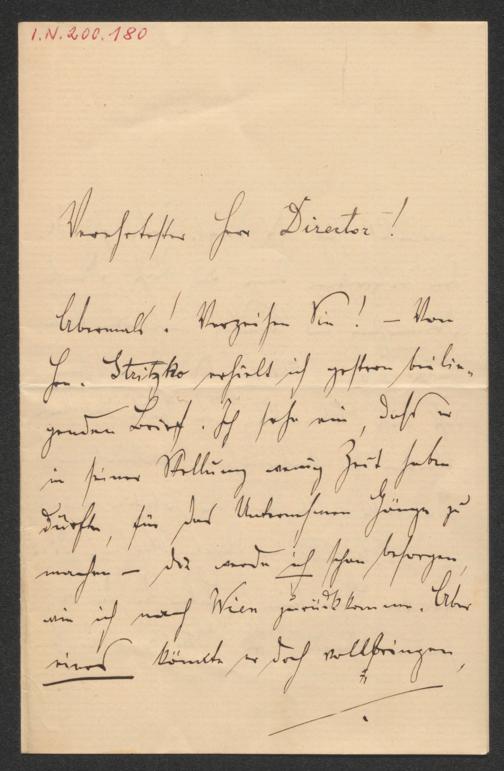 I.N. 200.180
Verehrtester Herr Director!
Abermals! Verzeihen Sie! – Von
Hrn. Stritzko erhielt ich gestern beilie-
genden Brief. Ich sehe ein, daß er
in seiner Stellung wenig Zeit haben
dürfte, für das Unternehmen Gänge zu
machen – die werde ich schon besorgen,
wie ich nach Wien zurückkomme. Aber
eines könnte er doch vollbringen,